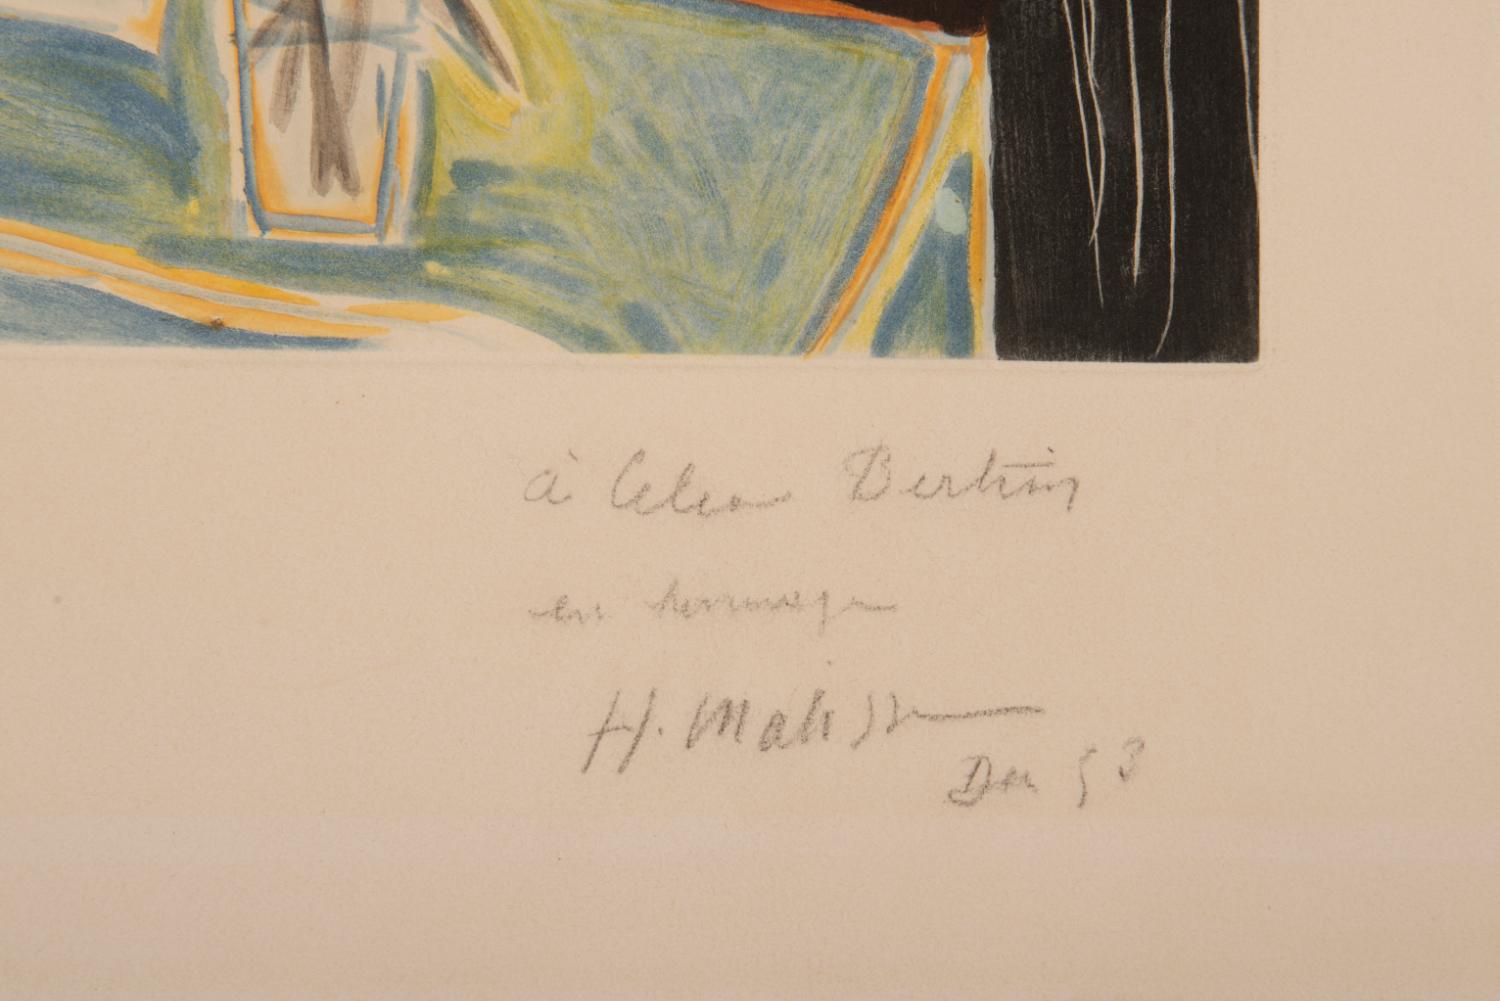 à Celia Bertin
en hommage
H. Matisse
Dec 53